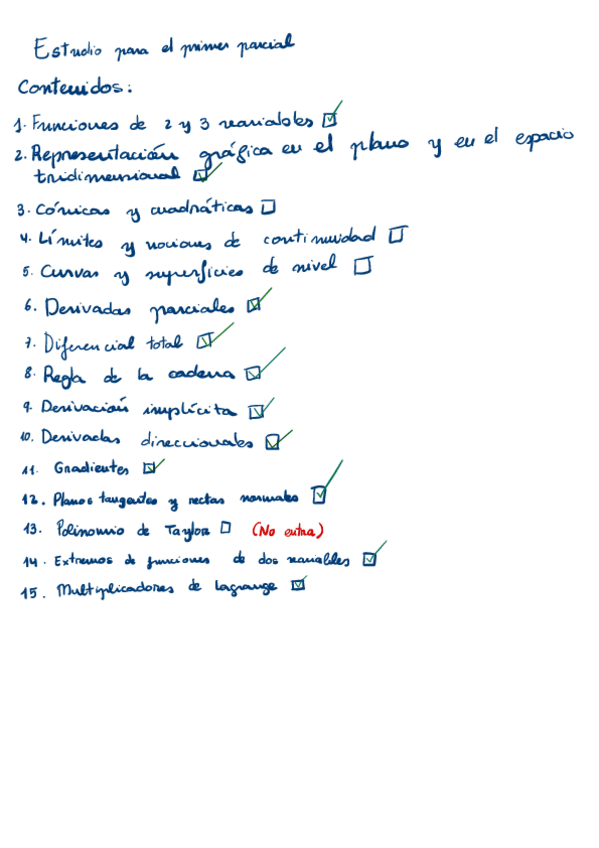 Estudio para el primer parcial
Contenidos:
1. Funciones de 2 y 3 variables ☑
2. Representación gráfica en el plano y en el espacio
tridimensional ☑
3. Cónicas y cuadráticas ☐
4. Límites y nociones de continuidad ☐
5. Curvas y superficies de nivel ☐
6. Derivadas parciales ☑
7. Diferencial total ☑
8. Regla de la cadena ☑
9. Derivación implícita ☑
10. Derivadas direccionales ☑
11. Gradientes ☑
12. Planos tangentes y rectas normales ☑
13. Polinomio de Taylor ☐ (No entra)
14. Extremos de funciones de dos variables ☑
15. Multiplicadores de Lagrange ☑